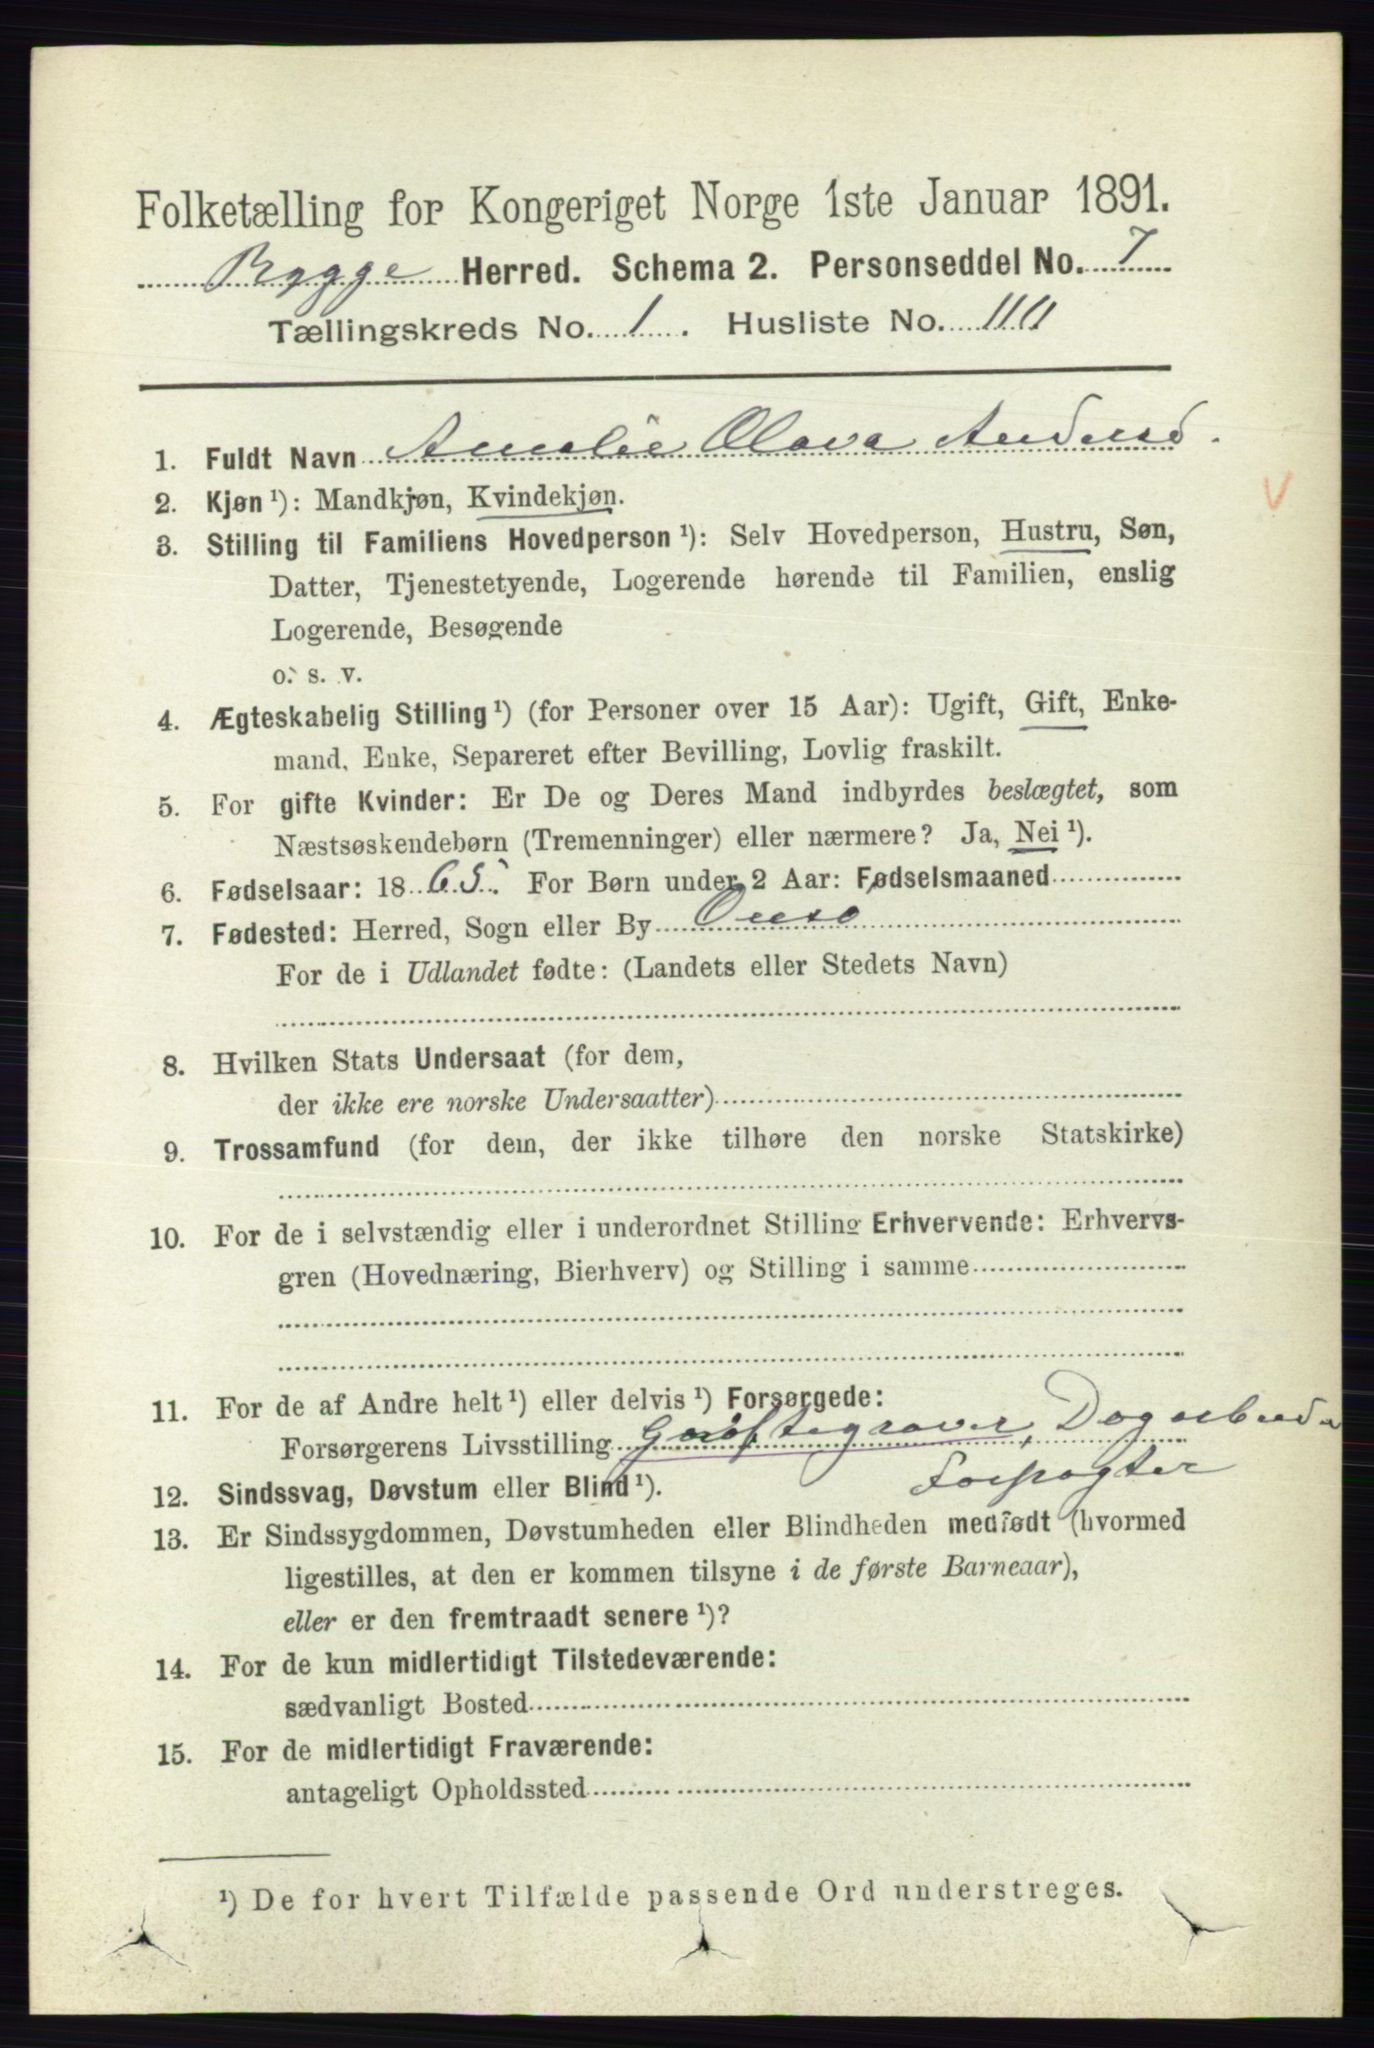 Folketælling for Kongeriget Norge 1ste Januar 1891.
Rygge Herred. Schema 2. Personseddel No. 7
Tællingskreds No. 1. Husliste No. 111
1. Fuldt Navn Amalie Olava Andersd.
2. Kjøn ¹): Mandkjøn, Kvindekjøn.
3. Stilling til Familiens Hovedperson ¹): Selv Hovedperson, Hustru, Søn,
Datter, Tjenestetyende, Logerende hørende til Familien, enslig
Logerende, Besøgende
o. s. v.
4. Ægteskabelig Stilling ¹) (for Personer over 15 Aar): Ugift, Gift, Enke-
mand, Enke, Separeret efter Bevilling, Lovlig fraskilt.
5. For gifte Kvinder: Er De og Deres Mand indbyrdes beslægtet, som
Næstsøskendebørn (Tremenninger) eller nærmere? Ja, Nei ¹).
6. Fødselsaar: 1865. For Børn under 2 Aar: Fødselsmaaned
7. Fødested: Herred, Sogn eller By Onsø
For de i Udlandet fødte: (Landets eller Stedets Navn)
8. Hvilken Stats Undersaat (for dem,
der ikke ere norske Undersaatter)
9. Trossamfund (for dem, der ikke tilhøre den norske Statskirke)
10. For de i selvstændig eller i underordnet Stilling Erhvervende: Erhvervs-
gren (Hovednæring, Bierhverv) og Stilling i samme
11. For de af Andre helt ¹) eller delvis ¹) Forsørgede:
Forsørgerens Livsstilling Grøftegraver, Dagarbeider
Forpagter
12. Sindssvag, Døvstum eller Blind ¹).
13. Er Sindssygdommen, Døvstumheden eller Blindheden medfødt (hvormed
ligestilles, at den er kommen tilsyne i de første Barneaar),
eller er den fremtraadt senere ¹)?
14. For de kun midlertidigt Tilstedeværende:
sædvanligt Bosted
15. For de midlertidigt Fraværende:
antageligt Opholdssted
¹) De for hvert Tilfælde passende Ord understreges.